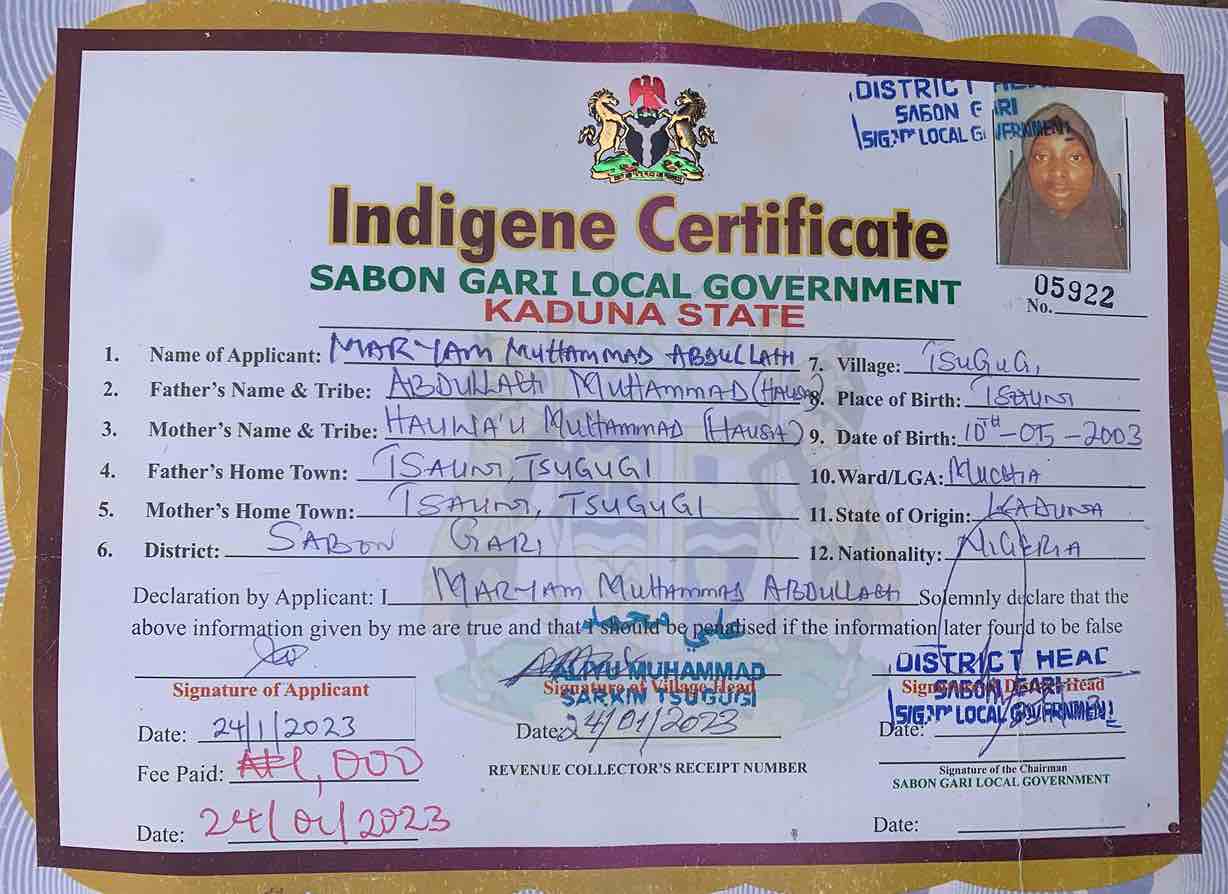 DISTRICT HEAD
SABON GARI
LOCAL GOVERNMENT
Indigene Certificate
SABON GARI LOCAL GOVERNMENT
KADUNA STATE
No. 05922
1. Name of Applicant: MARYAM MUHAMMAD ABDULLAHI
2. Father's Name & Tribe: ABDULLAHI MUHAMMAD (HAUSA)
3. Mother's Name & Tribe: HAUWA'U MUHAMMAD (HAUSA)
4. Father's Home Town: TSAUNI, TSUGUGI
5. Mother's Home Town: TSAUNI, TSUGUGI
6. District: SABON GARI
7. Village: TSUGUGI
8. Place of Birth: TSAUNI
9. Date of Birth: 10TH-05-2003
10. Ward/LGA: MUCHIA
11. State of Origin: KADUNA
12. Nationality: NIGERIA
Declaration by Applicant: I MARYAM MUHAMMAD ABDULLAHI Solemnly declare that the
above information given by me are true and that I should be penalised if the information later found to be false
علي محمد
ALIYU MUHAMMAD
SARKIN TSUGUGI
DISTRICT HEAD
SABON GARI
LOCAL GOVERNMENT
Signature of Applicant
Signature of Village Head
Signature of District Head
Date: 24/1/2023
Date: 24/01/2023
Date:
Fee Paid: ₦1,000
REVENUE COLLECTOR'S RECEIPT NUMBER
Signature of the Chairman
SABON GARI LOCAL GOVERNMENT
Date: 24/01/2023
Date: